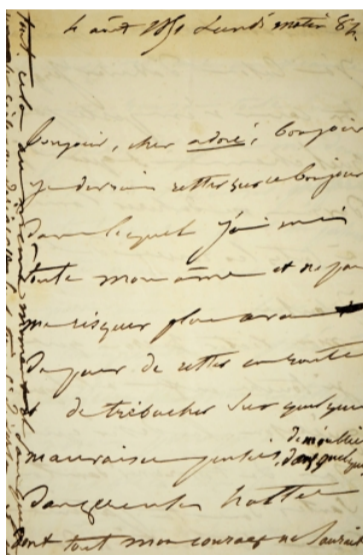 4 août 1851 Lundi matin 8h.
Bonjour, cher adoré, bonjour
je devrais rester sur ce bonjour
dans lequel j'ai mis
toute mon âme et ne pas
me risquer plus avant
de peur de rester en route
et de trébucher sur quelque
mauvaise pensée, de m'oublier dans quelque
dangereuse halte
dont tout mon courage ne saurait
tout cela